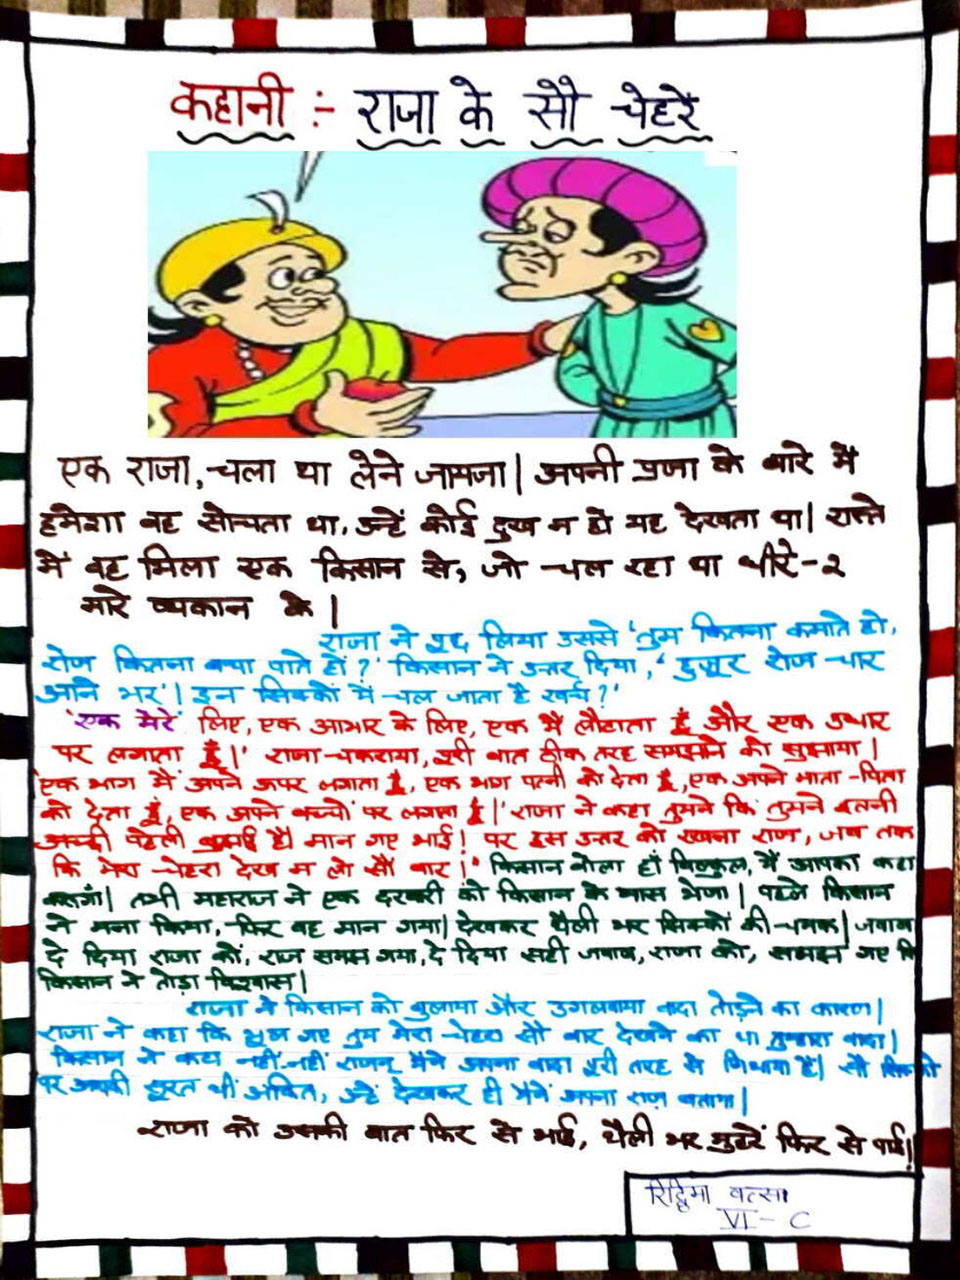 कहानी :- राजा के सौ चेहरे
एक राजा, चला था लेने जायजा| अपनी प्रजा के बारे में
हमेशा वह सोचता था, उन्हें कोई दुख न हो यह देखता था| रास्ते
में वह मिला एक किसान से, जो चल रहा था धीरे-२
मारे थकान के |
राजा ने पूछ लिया उससे 'तुम कितना कमाते हो,
रोज कितना क्या पाते हो?' किसान ने उत्तर दिया, 'हुजूर रोज चार
आने भर'| इन सिक्कों में चल जाता है खर्च?'
'एक मेरे लिए, एक आभार के लिए, एक मैं लौटाता हूँ और एक उधार
पर लगाता हूँ|' राजा चकराया, पूरी बात ठीक तरह समझाने को सुझाया|
'एक भाग मैं अपने ऊपर लगाता हूँ, एक भाग पत्नी को देता हूँ, एक अपने माता-पिता
को देता हूँ, एक अपने बच्चों पर लगाता हूँ|' राजा ने कहा तुमने कि तुमने इतनी
अच्छी पहेली है| मान गए भाई! पर इस उत्तर को रखना राज, जब तक
कि मेरा चेहरा देख न लो सौ बार|' किसान बोला हाँ बिल्कुल, मैं आपका कहा
करूँगा| तभी महाराज ने एक दरबारी को किसान के पास भेजा| पहले किसान
ने मना किया, फिर वह मान गया| देखकर थैली भर सिक्कों की चमक| जवाब
दे दिया राजा को, राज समझ गया, दे दिया सही जवाब, राजा को, समझ गए कि
किसान ने तोड़ा विश्वास|
राजा ने किसान को बुलाया और उगलवाया वादा तोड़ने का कारण|
राजा ने कहा कि भूल गए तुम मेरा चेहरा सौ बार देखने का था तुम्हारा वादा|
किसान ने कहा नहीं-नहीं राजन् मैंने अपना वादा पूरी तरह से निभाया है| सौ सिक्को
पर आपकी सूरत थी अंकित, उन्हें देखकर ही मैंने अपना राज़ बताया|
राजा को उसकी बात फिर से भाई, थैली भर मुहरें फिर से पाई|
रिद्धिमा वत्सा
VI - C